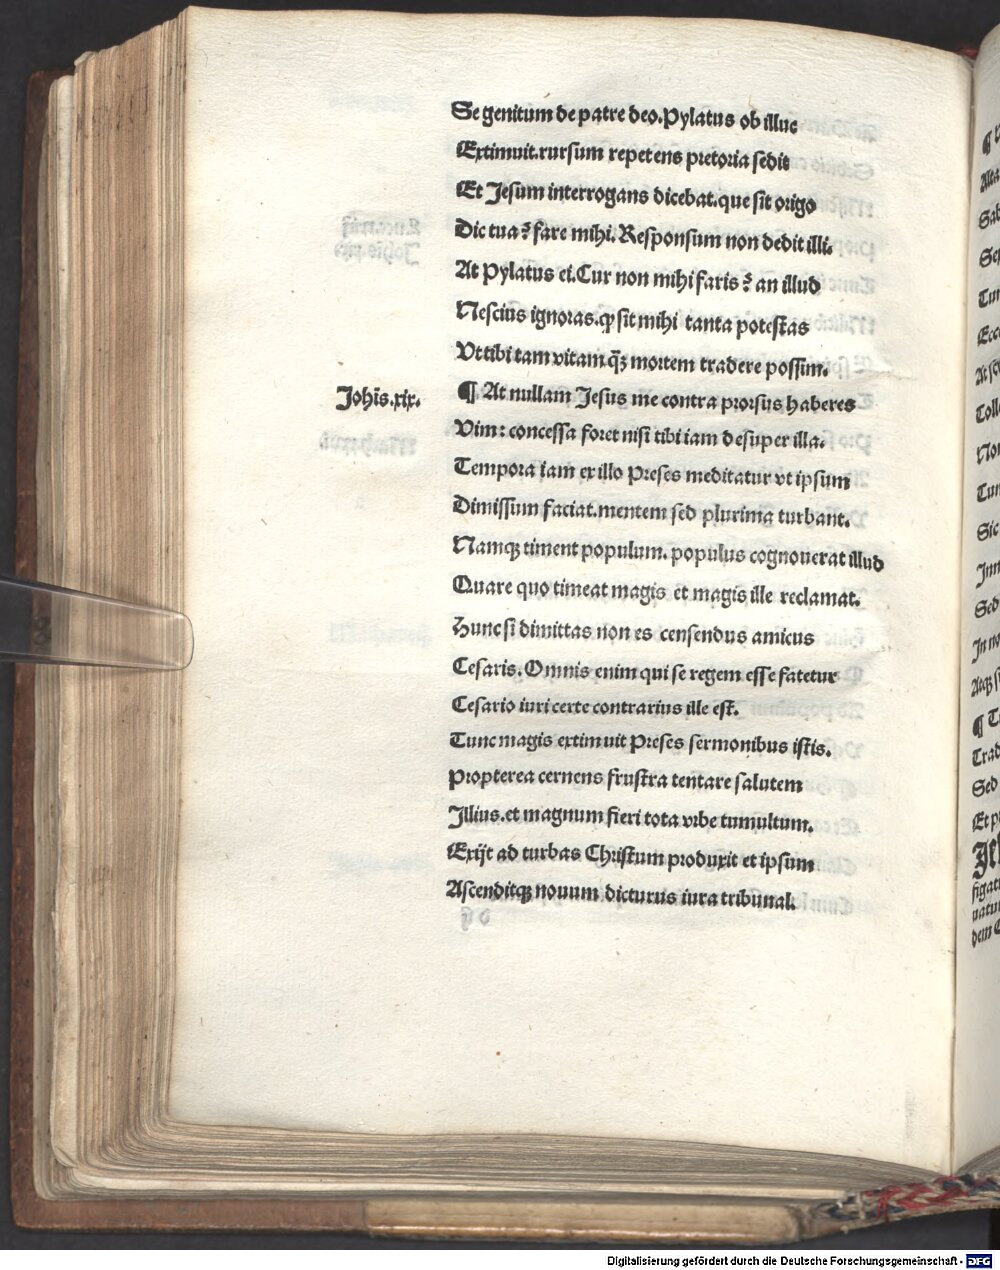 Se genitum de patre deo. Pylatus ob illuc
Extimuit. rursum repetens pretoria sedit
Et Jesum interrogans dicebat. que sit origo
Dic tua? fare mihi. Responsum non dedit illi.
At Pylatus ei. Cur non mihi faris? an illud
Nescius ignoras. ꝙ sit mihi tanta potestas
Vt tibi tam vitam q̃ꝫ mortem tradere possim.
Johis̄.xix.
¶ At nullam Jesus me contra prorsus haberes
Vim: concessa foret nisi tibi iam desuper illa.
Tempora iam ex illo Preses meditatur vt ipsum
Dimissum faciat. mentem sed plurima turbant.
Namqꝫ timent populum. populus cognouerat illud
Quare quo timeat magis et magis ille reclamat.
Hunc si dimittas non es censendus amicus
Cesaris. Omnis enim qui se regem esse fatetur
Cesario iuri certe contrarius ille est.
Tunc magis extimuit Preses sermonibus istis.
Propterea cernens frustra tentare salutem
Illius. et magnum fieri tota vrbe tumultum.
Exijt ad turbas Christum produxit et ipsum
Ascenditqꝫ nouum dicturus iura tribunal.
Digitalisierung gefördert durch die Deutsche Forschungsgemeinschaft - DFG